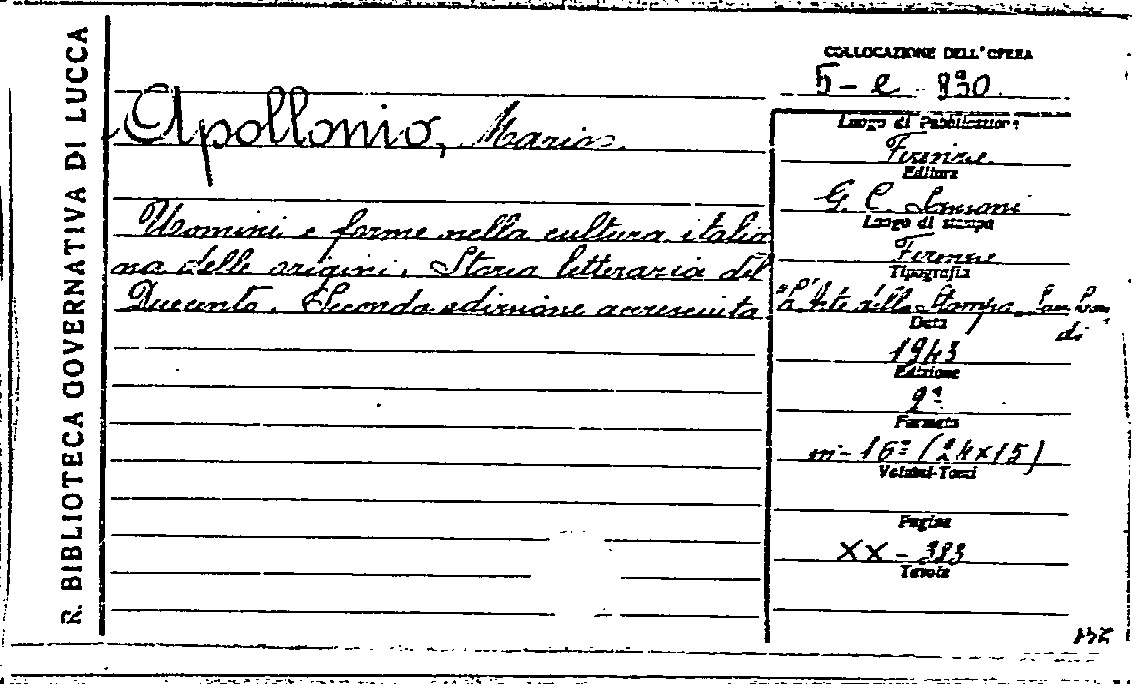 R. BIBLIOTECA GOVERNATIVA DI LUCCA
Apollonio, Mario.
Uomini e forme nella cultura italia
na delle origini. Storia letteraria del
Duecento. Seconda edizione accresciuta
COLLOCAZIONE DELL'OPERA
5 - e 830.
Luogo di Pubblicazione
Firenze
Editore
G. C. Sansoni
Luogo di stampa
Firenze
Tipografia
"L'Arte della Stampa"
Data
1943
Edizione
2ª
Formato
in-16º (24x15)
Volumi-Tomi
Pagine
XX - 383
Tavole